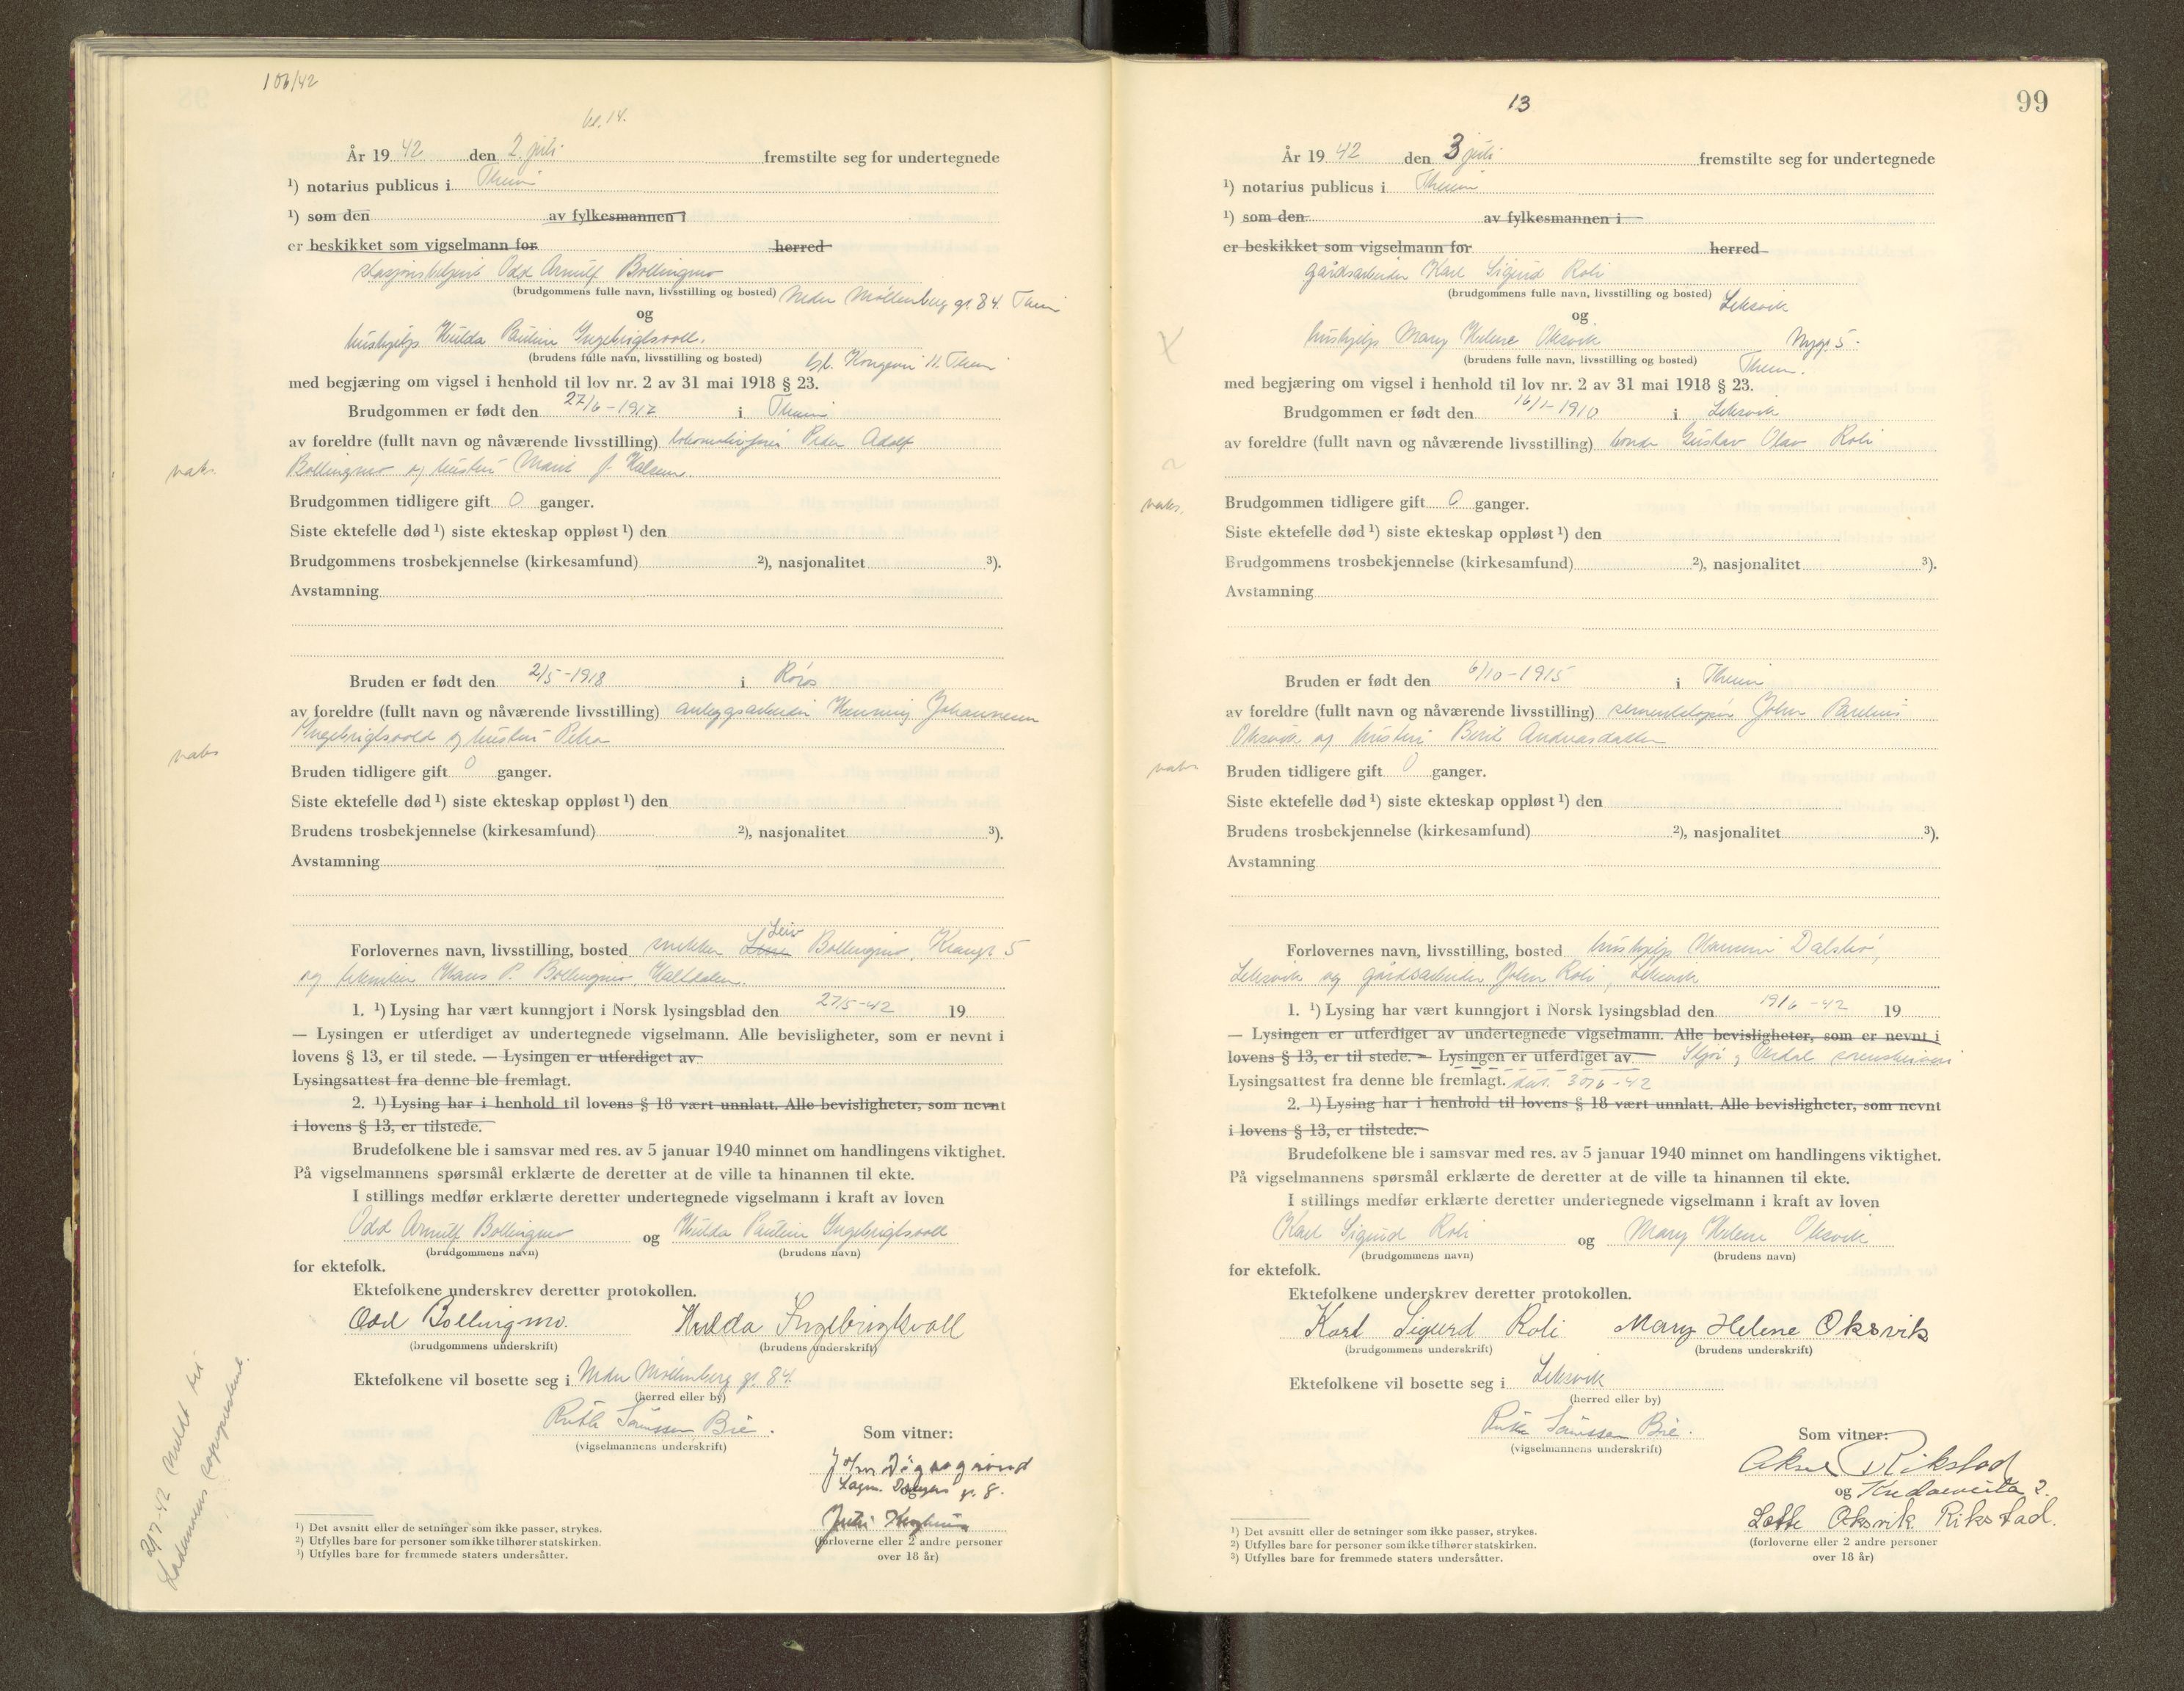 106/42
kl. 14.
År 19 42 den 2. juli fremstilte seg for undertegnede
¹) notarius publicus i Theim
¹) som den av fylkesmannen i
er beskikket som vigselmann for herred
stasjonsbetjent Odd Arnulf Bollingmo
(brudgommens fulle navn, livsstilling og bosted) Nedre Møllenberg gt 84. Theim
og
hushjelp Hulda Pauline Ingebrigtsvoll.
(brudens fulle navn, livsstilling og bosted) Kongevei 11. Theim
med begjæring om vigsel i henhold til lov nr. 2 av 31 mai 1918 § 23.
Brudgommen er født den 27/6-1917 i Theim
av foreldre (fullt navn og nåværende livsstilling) Peder Adolf
Bollingmo og hustru Marit J. Halsen.
vaks.
Brudgommen tidligere gift 0 ganger.
Siste ektefelle død ¹) siste ekteskap oppløst ¹) den
Brudgommens trosbekjennelse (kirkesamfund) ²), nasjonalitet ³).
Avstamning
Bruden er født den 2/5-1918 i Røros
av foreldre (fullt navn og nåværende livsstilling) anleggsarbeider Henning Johannesen
Ingebrigtsvold og hustru Petra
vaks
Bruden tidligere gift 0 ganger.
Siste ektefelle død ¹) siste ekteskap oppløst ¹) den
Brudens trosbekjennelse (kirkesamfund) ²), nasjonalitet ³).
Avstamning
Leiv
Forlovernes navn, livsstilling, bosted snekker Bollingmo, 5
og tekniker Hans P. Bollingmo, Haltdalen.
1. ¹) Lysing har vært kunngjort i Norsk lysingsblad den 27/5-42 19
— Lysingen er utferdiget av undertegnede vigselmann. Alle bevisligheter, som er nevnt i
lovens § 13, er til stede. — Lysingen er utferdiget av
Lysingsattest fra denne ble fremlagt.
2. ¹) Lysing har i henhold til lovens § 18 vært unnlatt. Alle bevisligheter, som nevnt
i lovens § 13, er tilstede.
Brudefolkene ble i samsvar med res. av 5 januar 1940 minnet om handlingens viktighet.
På vigselmannens spørsmål erklærte de deretter at de ville ta hinannen til ekte.
I stillings medfør erklærte deretter undertegnede vigselmann i kraft av loven
Odd Arnulf Bollingmo og Hulda Pauline Ingebrigtsvoll
(brudgommens navn) (brudens navn)
for ektefolk.
Ektefolkene underskrev deretter protokollen.
Odd Bollingmo. Hulda Ingebrigtsvoll
(brudgommens underskrift) (brudens underskrift)
Ektefolkene vil bosette seg i Nedre Møllenberg gt. 84.
(herred eller by)
Ruth Sørnssen Bie.
(vigselmannens underskrift)
Som vitner:
John
gt. 8.
(forloverne eller 2 andre personer
over 18 år)
2/7-42 meldt til
Ladejarlens sogneprest.
¹) Det avsnitt eller de setninger som ikke passer, strykes.
²) Utfylles bare for personer som ikke tilhører statskirken.
³) Utfylles bare for fremmede staters undersåtter.
13
99
År 19 42 den 3 juli fremstilte seg for undertegnede
¹) notarius publicus i Theim
¹) som den av fylkesmannen i
er beskikket som vigselmann for herred
gårdsarbeider Karl Sigurd Roli
(brudgommens fulle navn, livsstilling og bosted) Leksvik
og
hushjelp Mary Helene Oksvik Nygt 5
(brudens fulle navn, livsstilling og bosted) Theim.
med begjæring om vigsel i henhold til lov nr. 2 av 31 mai 1918 § 23.
Brudgommen er født den 16/1-1910 i Leksvik
av foreldre (fullt navn og nåværende livsstilling) bonde Gustav Olav Roli
vaks.
Brudgommen tidligere gift 0 ganger.
Siste ektefelle død ¹) siste ekteskap oppløst ¹) den
Brudgommens trosbekjennelse (kirkesamfund) ²), nasjonalitet ³).
Avstamning
Bruden er født den 6/10-1915 i Theim
av foreldre (fullt navn og nåværende livsstilling) sementstøper John Parelius
Oksvik og hustru Berit Andreasdatter
vaks
Bruden tidligere gift 0 ganger.
Siste ektefelle død ¹) siste ekteskap oppløst ¹) den
Brudens trosbekjennelse (kirkesamfund) ²), nasjonalitet ³).
Avstamning
Forlovernes navn, livsstilling, bosted hushjelp Dalsbø,
Leksvik og gårdsarbeider John Roli, Leksvik
1. ¹) Lysing har vært kunngjort i Norsk lysingsblad den 19/6-42 19
— Lysingen er utferdiget av undertegnede vigselmann. Alle bevisligheter, som er nevnt i
lovens § 13, er til stede. — Lysingen er utferdiget av Stjør og Verdal sorenskriveri
Lysingsattest fra denne ble fremlagt. dat. 30/6-42
2. ¹) Lysing har i henhold til lovens § 18 vært unnlatt. Alle bevisligheter, som nevnt
i lovens § 13, er tilstede.
Brudefolkene ble i samsvar med res. av 5 januar 1940 minnet om handlingens viktighet.
På vigselmannens spørsmål erklærte de deretter at de ville ta hinannen til ekte.
I stillings medfør erklærte deretter undertegnede vigselmann i kraft av loven
Karl Sigurd Roli og Mary Helene Oksvik
(brudgommens navn) (brudens navn)
for ektefolk.
Ektefolkene underskrev deretter protokollen.
Karl Sigurd Roli Mary Helene Oksvik
(brudgommens underskrift) (brudens underskrift)
Ektefolkene vil bosette seg i Leksvik
(herred eller by)
Ruth Sørnssen Bie.
(vigselmannens underskrift)
Som vitner:
Aksel Rikstad
og 2.
Lotte Oksvik Rikstad.
(forloverne eller 2 andre personer
over 18 år)
¹) Det avsnitt eller de setninger som ikke passer, strykes.
²) Utfylles bare for personer som ikke tilhører statskirken.
³) Utfylles bare for fremmede staters undersåtter.